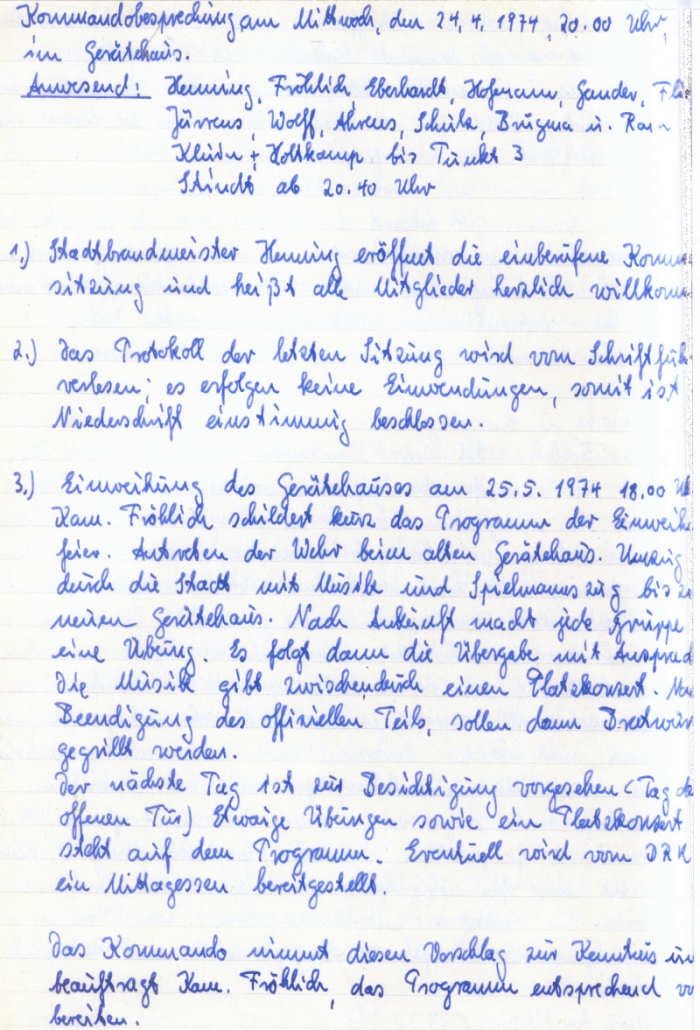 Kommandobesprechung am Mittwoch, den 24.4.1974, 20.00 Uhr,
im Gerätehaus.
Anwesend: Henning, Fröhlich, Eberhardt, Hofmann, Gander,
Jürrens, Wolff, Ahrens, Schülke, Brügma u.
Klüdn + Holtkamp bis Punkt 3
Stindt ab 20.40 Uhr
1.) Stadtbrandmeister Henning eröffnet die einberufene Komm
sitzung und heißt alle Mitglieder herzlich willkomm
2.) Das Protokoll der letzten Sitzung wird vom Schriftfüh
verlesen; es erfolgen keine Einwendungen, somit ist
Niederschrift einstimmig beschlossen.
3.) Einweihung des Gerätehauses am 25.5.1974 18.00 Uh
Kam. Fröhlich schildert kurz das Programm der Einweihu
feier. Antreten der Wehr beim alten Gerätehaus. Umzug
durch die Stadt mit Musik und Spielmannszug bis z
neuen Gerätehaus. Nach Ankunft macht jede Gruppe
eine Übung. Es folgt dann die Übergabe mit Ansprach
Die Musik gibt zwischendurch einen Platzkonzert. Na
Beendigung des offiziellen Teils, sollen dann Bratwür
gegrillt werden.
Der nächste Tag ist zur Besichtigung vorgesehen (Tag de
offenen Tür) Etwaige Übungen sowie ein Platzkonzert
steht auf dem Programm. Eventuell wird vom DRK
ein Mittagessen bereitgestellt.
Das Kommando nimmt diesen Vorschlag zur Kenntnis un
beauftragt Kam. Fröhlich, das Programm entsprechend vo
bereiten.